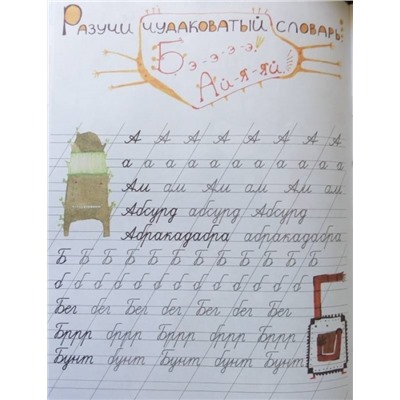 Разучи чудаковатый словарь:
Бэ-э-э-э!
Ай-я-яй!
А А А А А А А А
а а а а а а а а а а
Ам ам Ам ам Ам ам
Абсурд абсурд Абсурд
Абракадабра абракадабра
Б Б Б Б Б Б Б Б Б Б Б
б б б б б б б б б б б
Бег бег Бег бег Бег бег Бег
Бррр бррр Бррр бррр Бррр
Бунт бунт Бунт бунт Бунт